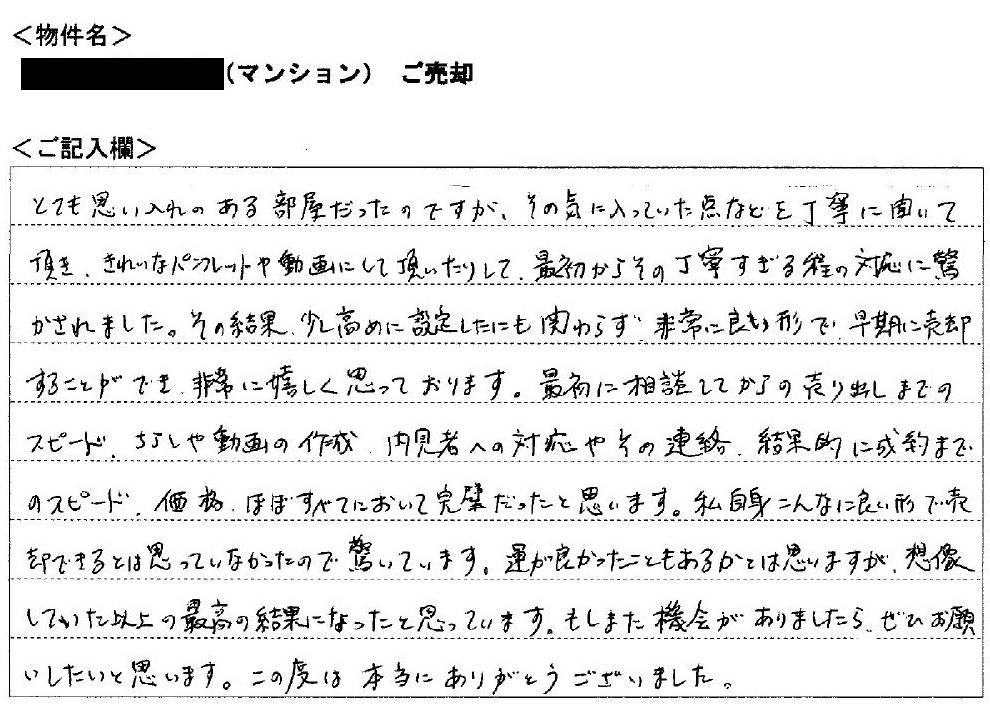 ＜物件名＞
（マンション） ご売却
＜ご記入欄＞
とても思い入れのある部屋だったのですが、その気に入っていた点などを丁寧に聞いて
頂き、きれいなパンフレットや動画にして頂いたりして、最初からその丁寧すぎる程の対応に驚
かされました。その結果、少し高めに設定したにも関わらず非常に良い形で早期に売却
することができ、非常に嬉しく思っております。最初に相談してからの売り出しまでの
スピード、ちらしや動画の作成、内見者への対応やその連絡、結果的に成約まで
のスピード、価格、ほぼすべてにおいて完璧だったと思います。私自身こんなに良い形で売
却できるとは思っていなかったので驚いています。運が良かったこともあるかとは思いますが、想像
していた以上の最高の結果になったと思っています。もしまた機会がありましたら、ぜひお願
いしたいと思います。この度は本当にありがとうございました。